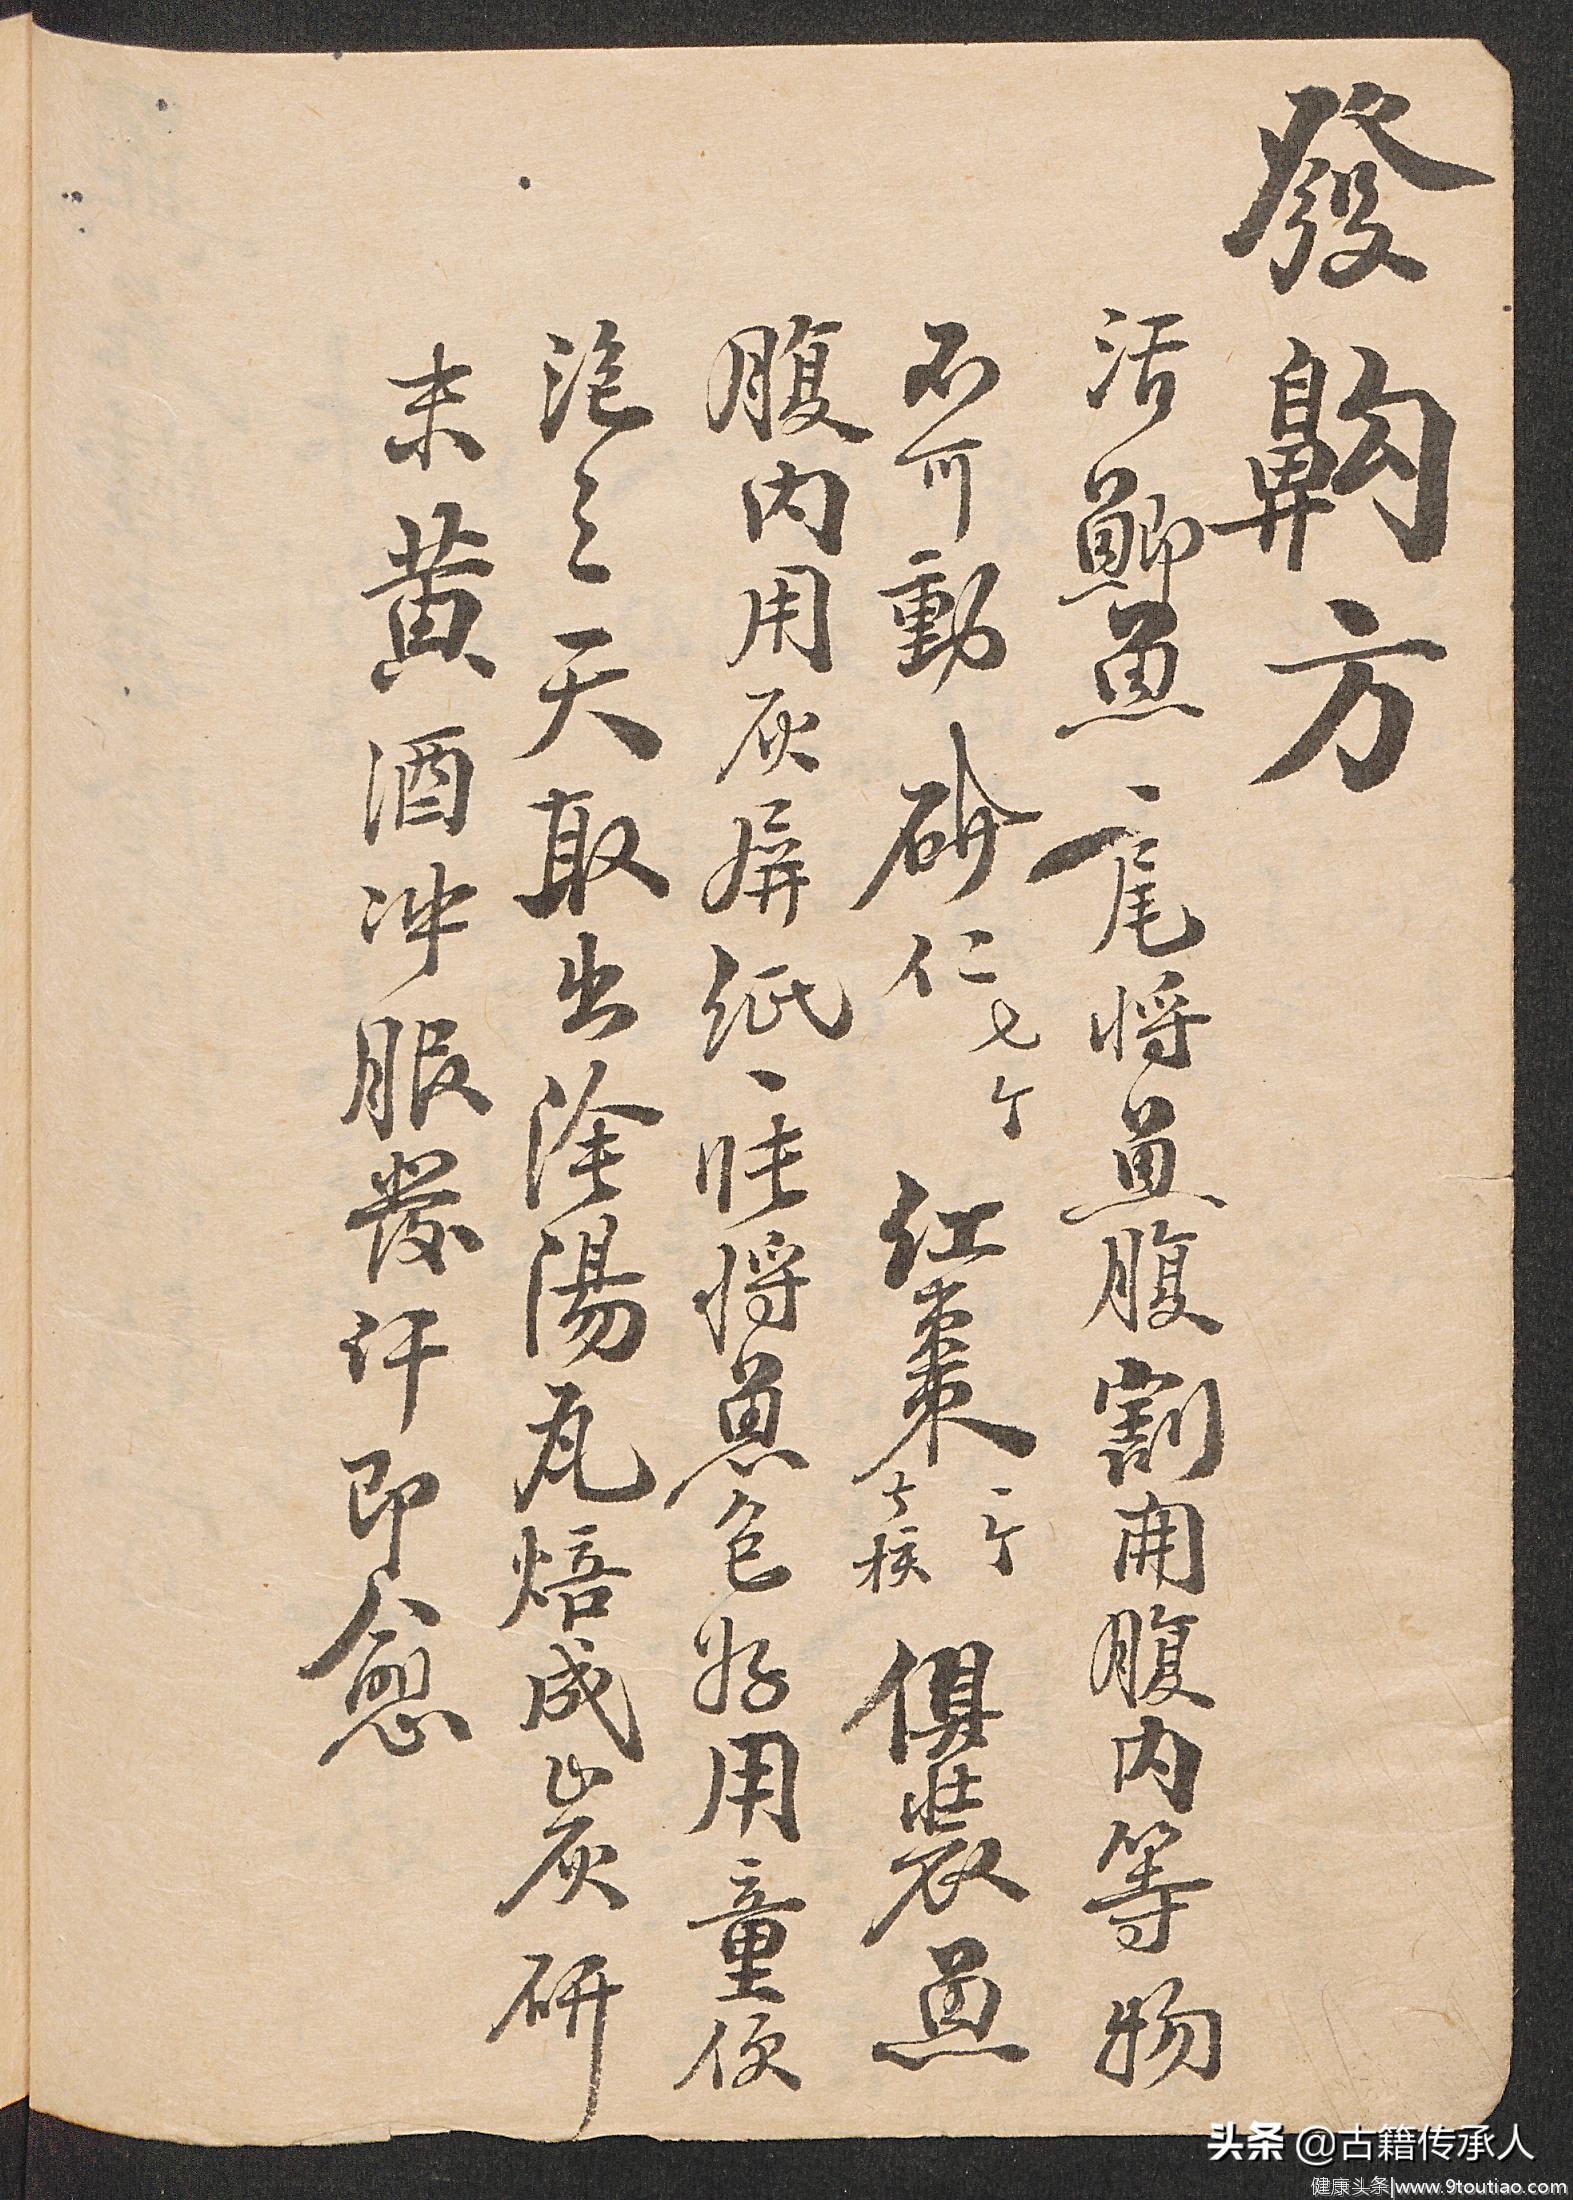 發齁方
活鯽魚一尾將魚腹割開腹內等物
不可動砂仁七个紅棗一个去核俱裝魚
腹內用灰屏紙一張將魚包好用童便
泡三天取出陰陽瓦焙成炭研
末黃酒冲服發汗即愈
头条 @古籍传承人
健康头条|www.9toutiao.com